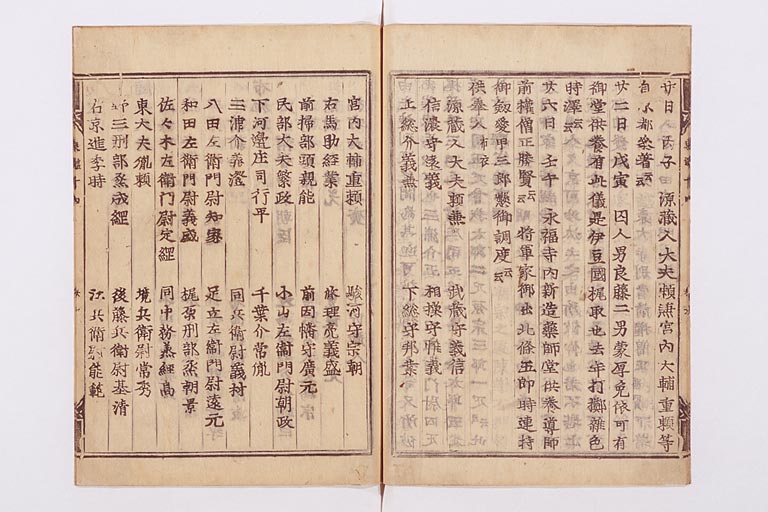 廿日丙子源蔵人大夫頼兼宮内大輔重頼等
自京都参著云云
廿二日戊寅囚人男良藤二男蒙厚免依可有
御堂供養有此儀是伊豆國梶取也去年打擲雑色
時澤云云
廿六日壬午永福寺内新造薬師堂供養導師
前權僧正勝賢云云将軍家御出北條五郎時連持
御劔愛甲三郎懸御調度云云
供奉人
源蔵人大夫頼兼 武蔵守義信
信濃守遠義 相摸守惟義
上総介義兼 下総守邦業
宮内大輔重頼 駿河守宗朝
右馬助經業 修理亮義盛
前掃部頭親能 前因幡守廣元
民部大夫繁政 小山左衛門尉朝政
下河邊庄司行平 千葉介常胤
三浦介義澄 同兵衛尉義村
八田左衛門尉知家 足立左衛門尉遠元
和田左衛門尉義盛 梶原刑部烝朝景
佐々木左衛門尉定經 同中務烝經高
東大夫胤頼 境兵衛尉常秀
野三刑部烝成經 後藤兵衛尉基清
右京進季時 江兵衛尉能範